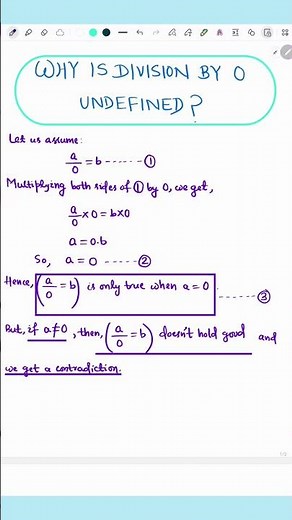 WHY IS DIVISION BY 0
UNDEFINED?
Let us assume:
a/0 = b ------ ①
Multiplying both sides of ① by 0, we get,
a/0 × 0 = b × 0
a = 0·b
So, a = 0 ------ ②
Hence, (a/0 = b) is only true when a = 0 ------ ③
But, if a ≠ 0, then, (a/0 = b) doesn't hold good and
we get a contradiction.